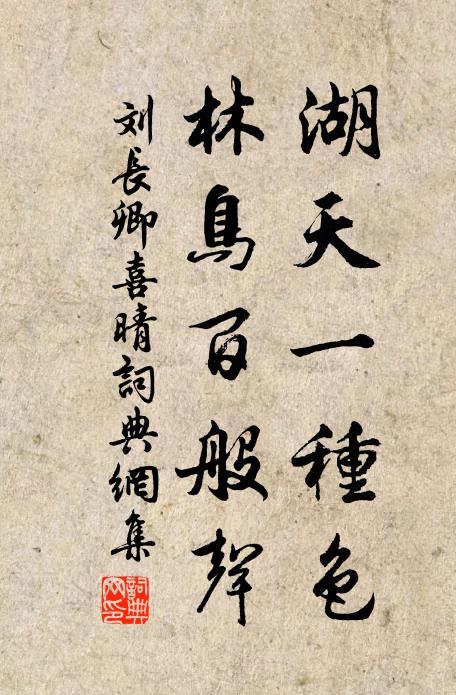 湖天一種色
林鳥百般聲
刘長卿喜晴詞典網集
詞典網印